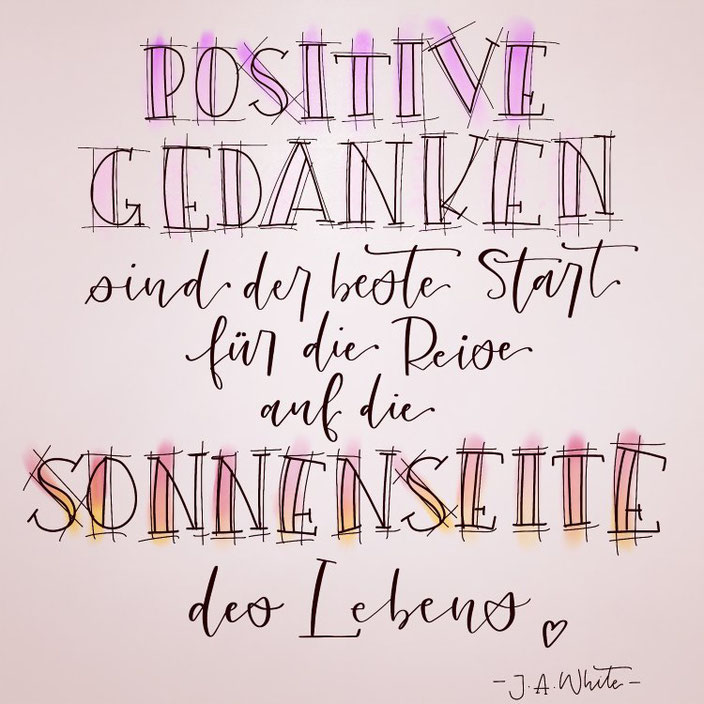 POSITIVE
GEDANKEN
sind der beste Start
für die Reise
auf die
SONNENSEITE
des Lebens
- J. A. White -